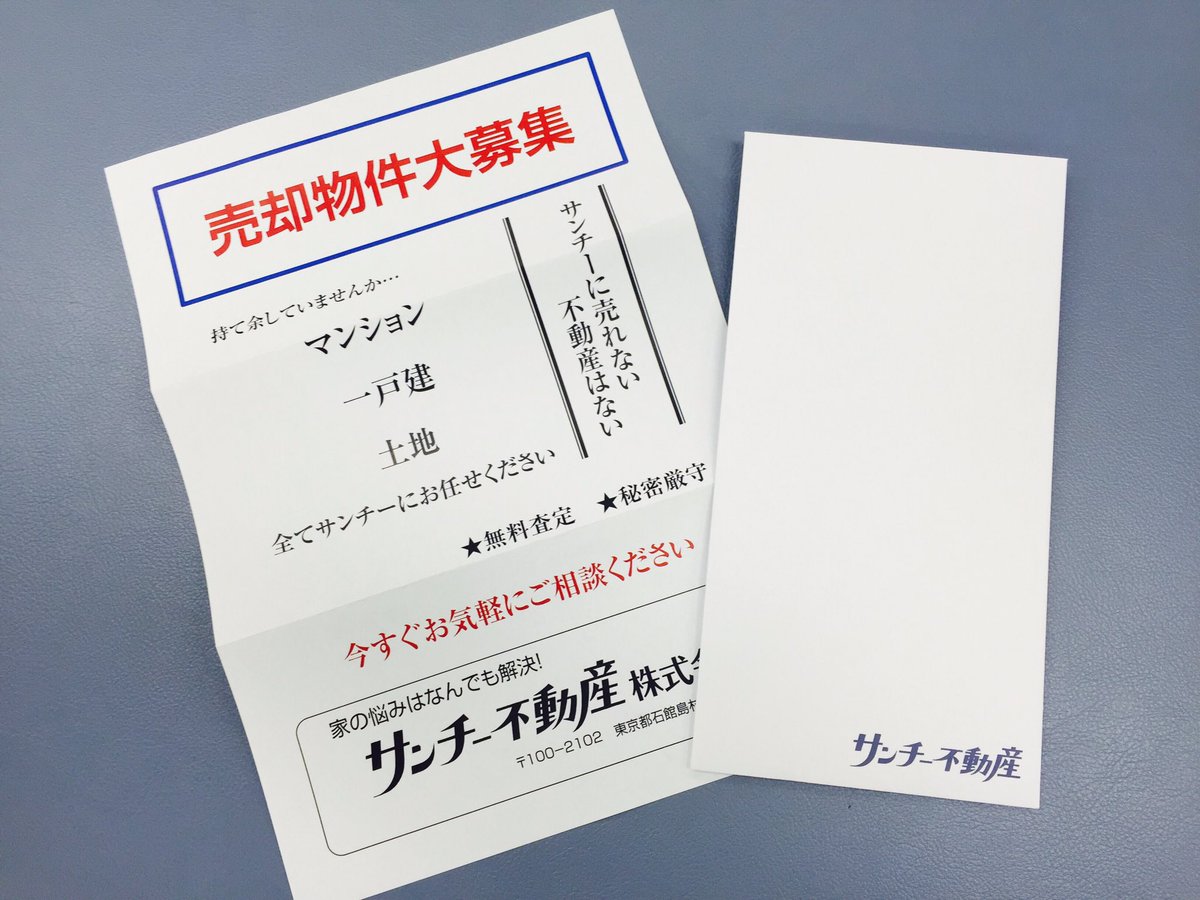 売却物件大募集
サンチーに売れない
不動産はない
持て余していませんか…
マンション
一戸建
土地
全てサンチーにお任せください
★無料査定 ★秘密厳守
今すぐお気軽にご相談ください
家の悩みはなんでも解決!
サンチー不動産 株式会
〒100-2102 東京都石館島村
サンチー不動産